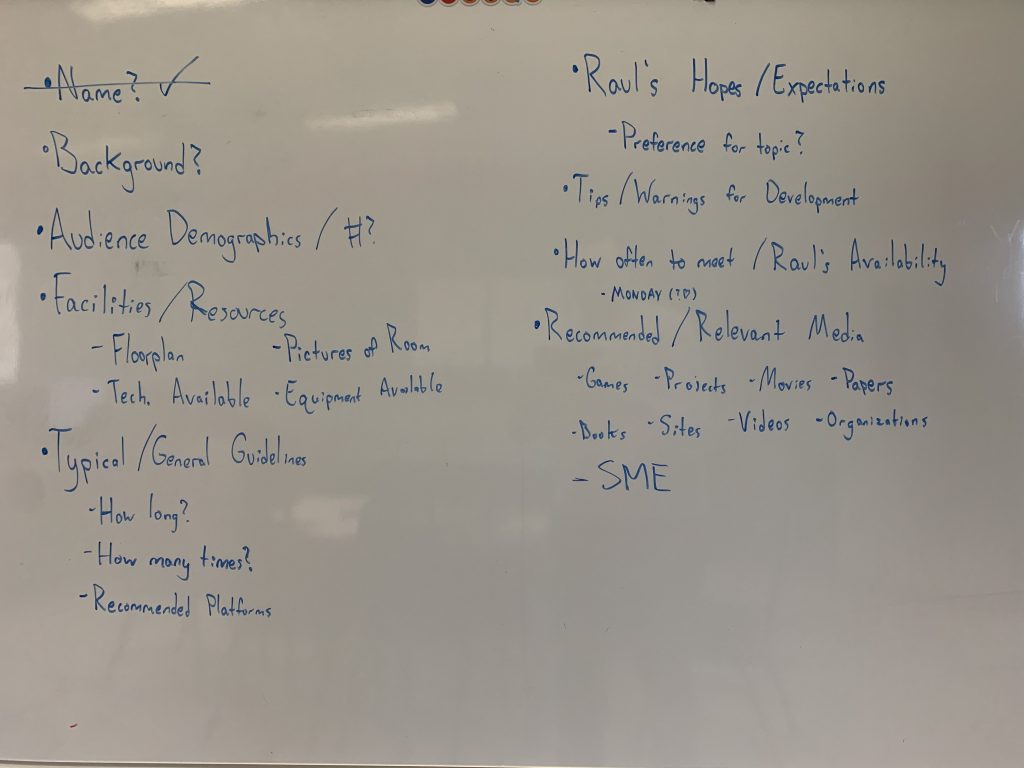 • Name? ✓
• Background?
• Audience Demographics / #?
• Facilities / Resources
- Floorplan - Pictures of Room
- Tech. Available - Equipment Available
• Typical / General Guidelines
- How long?
- How many times?
- Recommended Platforms
• Raul's Hopes / Expectations
- Preference for topic?
• Tips / Warnings for Development
• How often to meet / Raul's Availability
- MONDAY
• Recommended / Relevant Media
- Games - Projects - Movies - Papers
- Books - Sites - Videos - Organizations
- SME